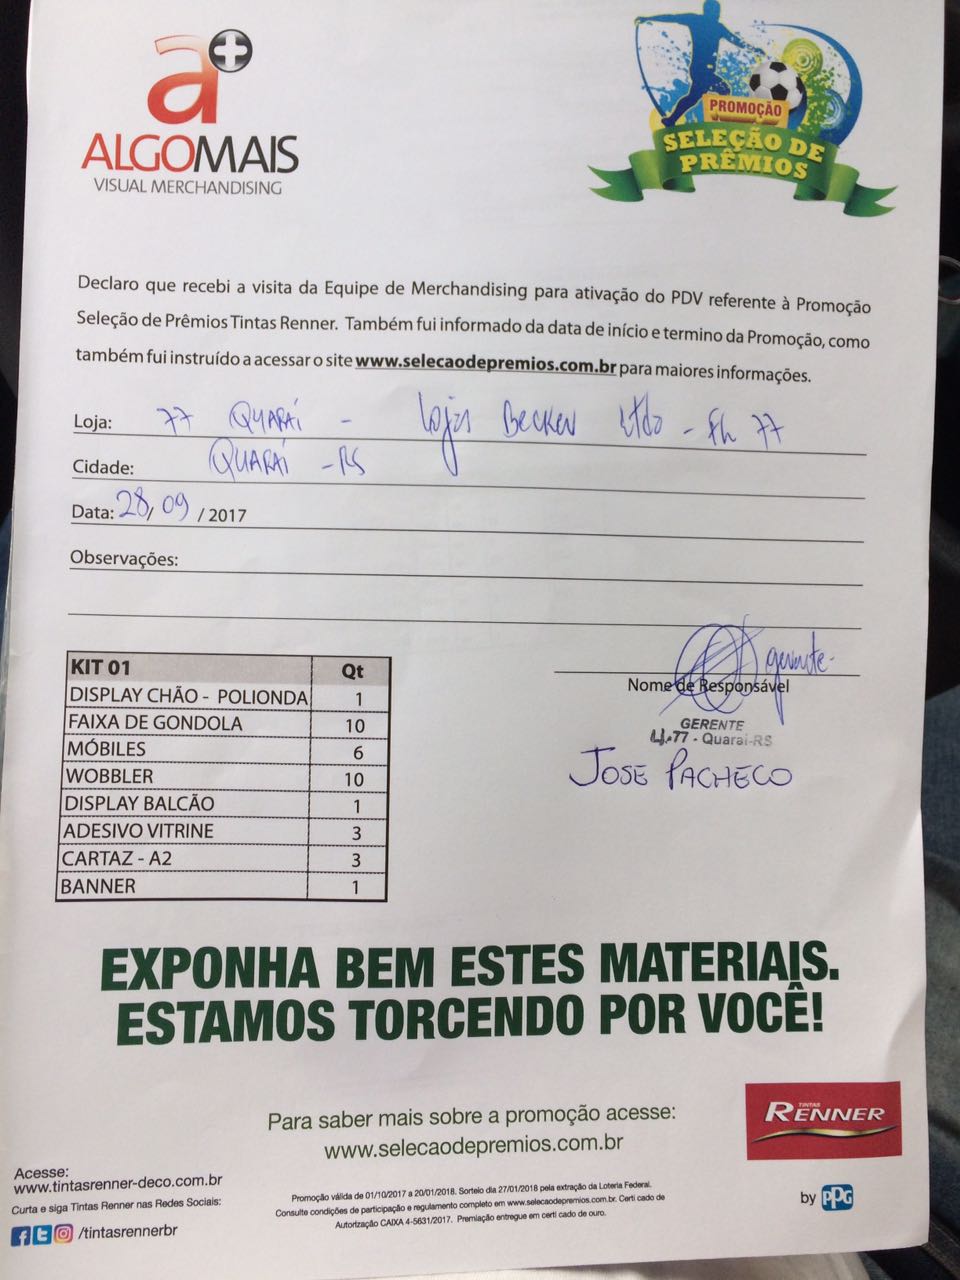 a+
ALGOMAIS
VISUAL MERCHANDISING
PROMOÇÃO
SELEÇÃO DE
PRÊMIOS
Declaro que recebi a visita da Equipe de Merchandising para ativação do PDV referente à Promoção
Seleção de Prêmios Tintas Renner. Também fui informado da data de início e termino da Promoção, como
também fui instruído a acessar o site www.selecaodepremios.com.br para maiores informações.
Loja: 77 QUARAÍ - Lojas BECKER Ltda - FL 77
Cidade: QUARAÍ - RS
Data: 28/ 09 / 2017
Observações:
gerente-
Nome de Responsável
GERENTE
77 - Quaraí-RS
JOSE PACHECO
KIT 01 Qt
DISPLAY CHÃO - POLIONDA 1
FAIXA DE GONDOLA 10
MÓBILES 6
WOBBLER 10
DISPLAY BALCÃO 1
ADESIVO VITRINE 3
CARTAZ - A2 3
BANNER 1
EXPONHA BEM ESTES MATERIAIS.
ESTAMOS TORCENDO POR VOCÊ!
Para saber mais sobre a promoção acesse:
www.selecaodepremios.com.br
TINTAS
RENNER
by PPG
Acesse:
www.tintasrenner-deco.com.br
Curta e siga Tintas Renner nas Redes Sociais:
/tintasrennerbr
Promoção válida de 01/10/2017 a 20/01/2018. Sorteio dia 27/01/2018 pela extração da Loteria Federal.
Consulte condições de participação e regulamento completo em www.selecaodepremios.com.br. Certi cado de
Autorização CAIXA 4-5631/2017. Premiação entregue em certi cado de ouro.